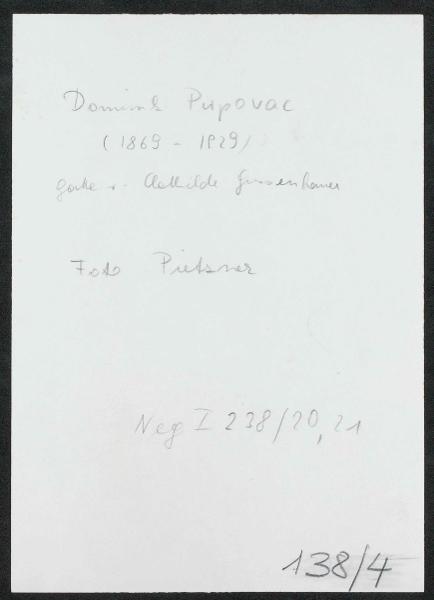 Dominik Pupovac
(1869 - 1929)
Gatte v. Clothilde Gussenbauer
Foto Pietzner
Neg I 238/20, 21
138/4